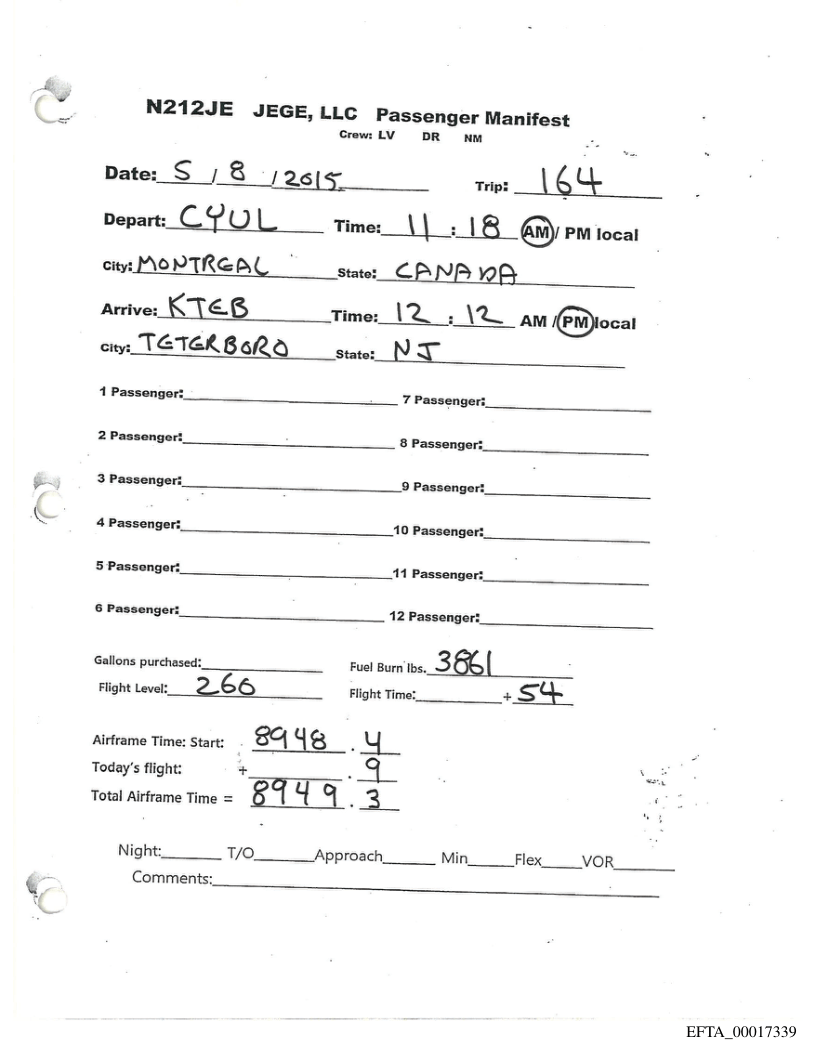 N212JE JEGE, LLC Passenger Manifest
Crew: LV DR NM
Date: 5 / 8 / 2015 Trip: 164
Depart: CYUL Time: 11 : 18 AM / PM local
City: MONTREAL State: CANADA
Arrive: KTEB Time: 12 : 12 AM / PM local
City: TETERBORO State: NJ
1 Passenger: 7 Passenger:
2 Passenger: 8 Passenger:
3 Passenger: 9 Passenger:
4 Passenger: 10 Passenger:
5 Passenger: 11 Passenger:
6 Passenger: 12 Passenger:
Gallons purchased: Fuel Burn lbs. 3861
Flight Level: 260 Flight Time: + 54
Airframe Time: Start: 8948 . 4
Today's flight: + . 9
Total Airframe Time = 8949 . 3
Night: T/O Approach Min Flex VOR
Comments:
EFTA_00017339